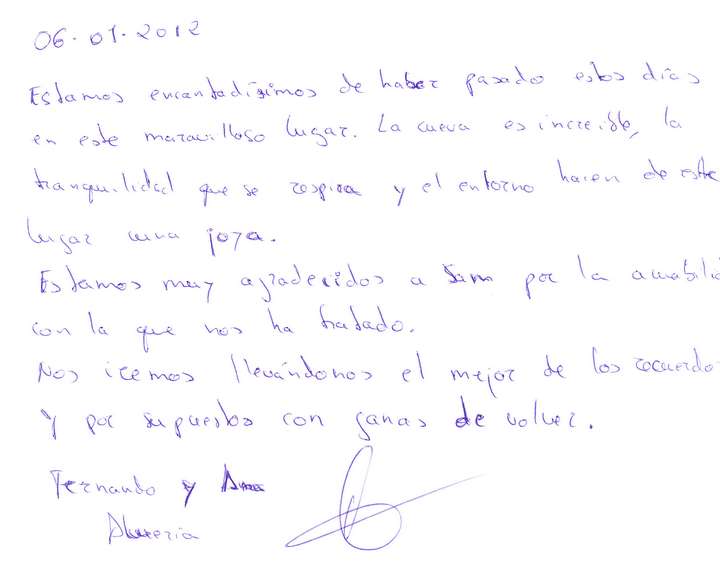 06.01.2012
Estamos encantadísimos de haber pasado estos días
en este maravilloso lugar. La cueva es increible, la
tranquilidad que se respira y el entorno hacen de este
lugar una joya.
Estamos muy agradecidos a Sam por la amabili
con la que nos ha tratado.
Nos iremos llevándonos el mejor de los recuerdo
Y por supuestos con ganas de volver.
Fernando y Ana
Almería